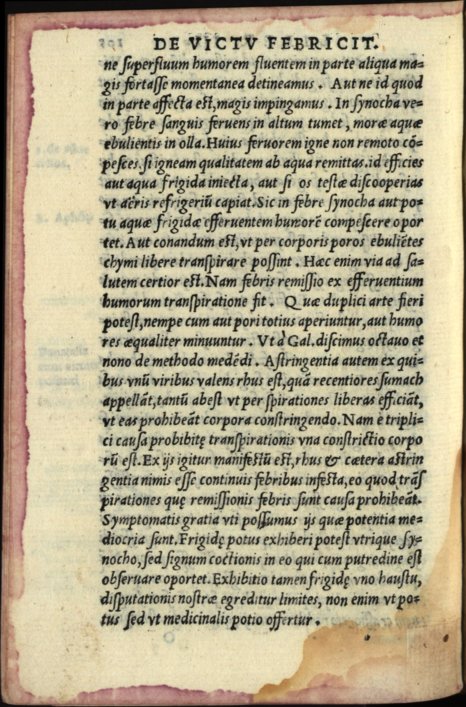 DE VICTV FEBRICIT.
ne superfluum humorem fluentem in parte aliqua ma=
gis fortasse momentanea detineamus. Aut ne id quod
in parte affecta est, magis impingamus. In synocha ve=
ro febre sanguis feruens in altum tumet, moræ aquæ
ebulientis in olla. Huius feruorem igne non remoto cō=
pesces, si igneam qualitatem ab aqua remittas. id efficies
aut aqua frigida iniecta, aut si os testæ discooperias
vt aëris refrigeriū capiat. Sic in febre synocha aut po=
tu aquæ frigidæ efferuentem humorē compescere opor
tet. Aut conandum est, vt per corporis poros ebuliētes
chymi libere transpirare possint. Hæc enim via ad sa=
lutem certior est. Nam febris remissio ex efferuentium
humorum transpiratione fit. Quæ duplici arte fieri
potest, nempe cum aut pori totius aperiuntur, aut humo
res æqualiter minuuntur. Vt à Gal. discimus octauo et
nono de methodo medēdi. Astringentia autem ex qui=
bus vnū viribus valens rhus est, quā recentiores sumach
appellāt, tantū abest vt per spirationes liberas efficiāt,
vt eas prohibeāt corpora constringendo. Nam è tripli=
ci causa prohibitę transpirationis vna constrictio corpo
rū est. Ex ijs igitur manifestū est, rhus & cætera astrin
gentia nimis esse continuis febribus infesta, eo quod trās
pirationes quę remissionis febris sunt causa prohibeāt.
Symptomatis gratia vti possumus ijs quæ potentia me=
diocria sunt. Frigidę potus exhiberi potest vtrique sy=
nocho, sed signum coctionis in eo qui cum putredine est
obseruare oportet. Exhibitio tamen frigidę vno haustu,
disputationis nostræ egreditur limites, non enim vt po=
tus sed vt medicinalis potio offertur.